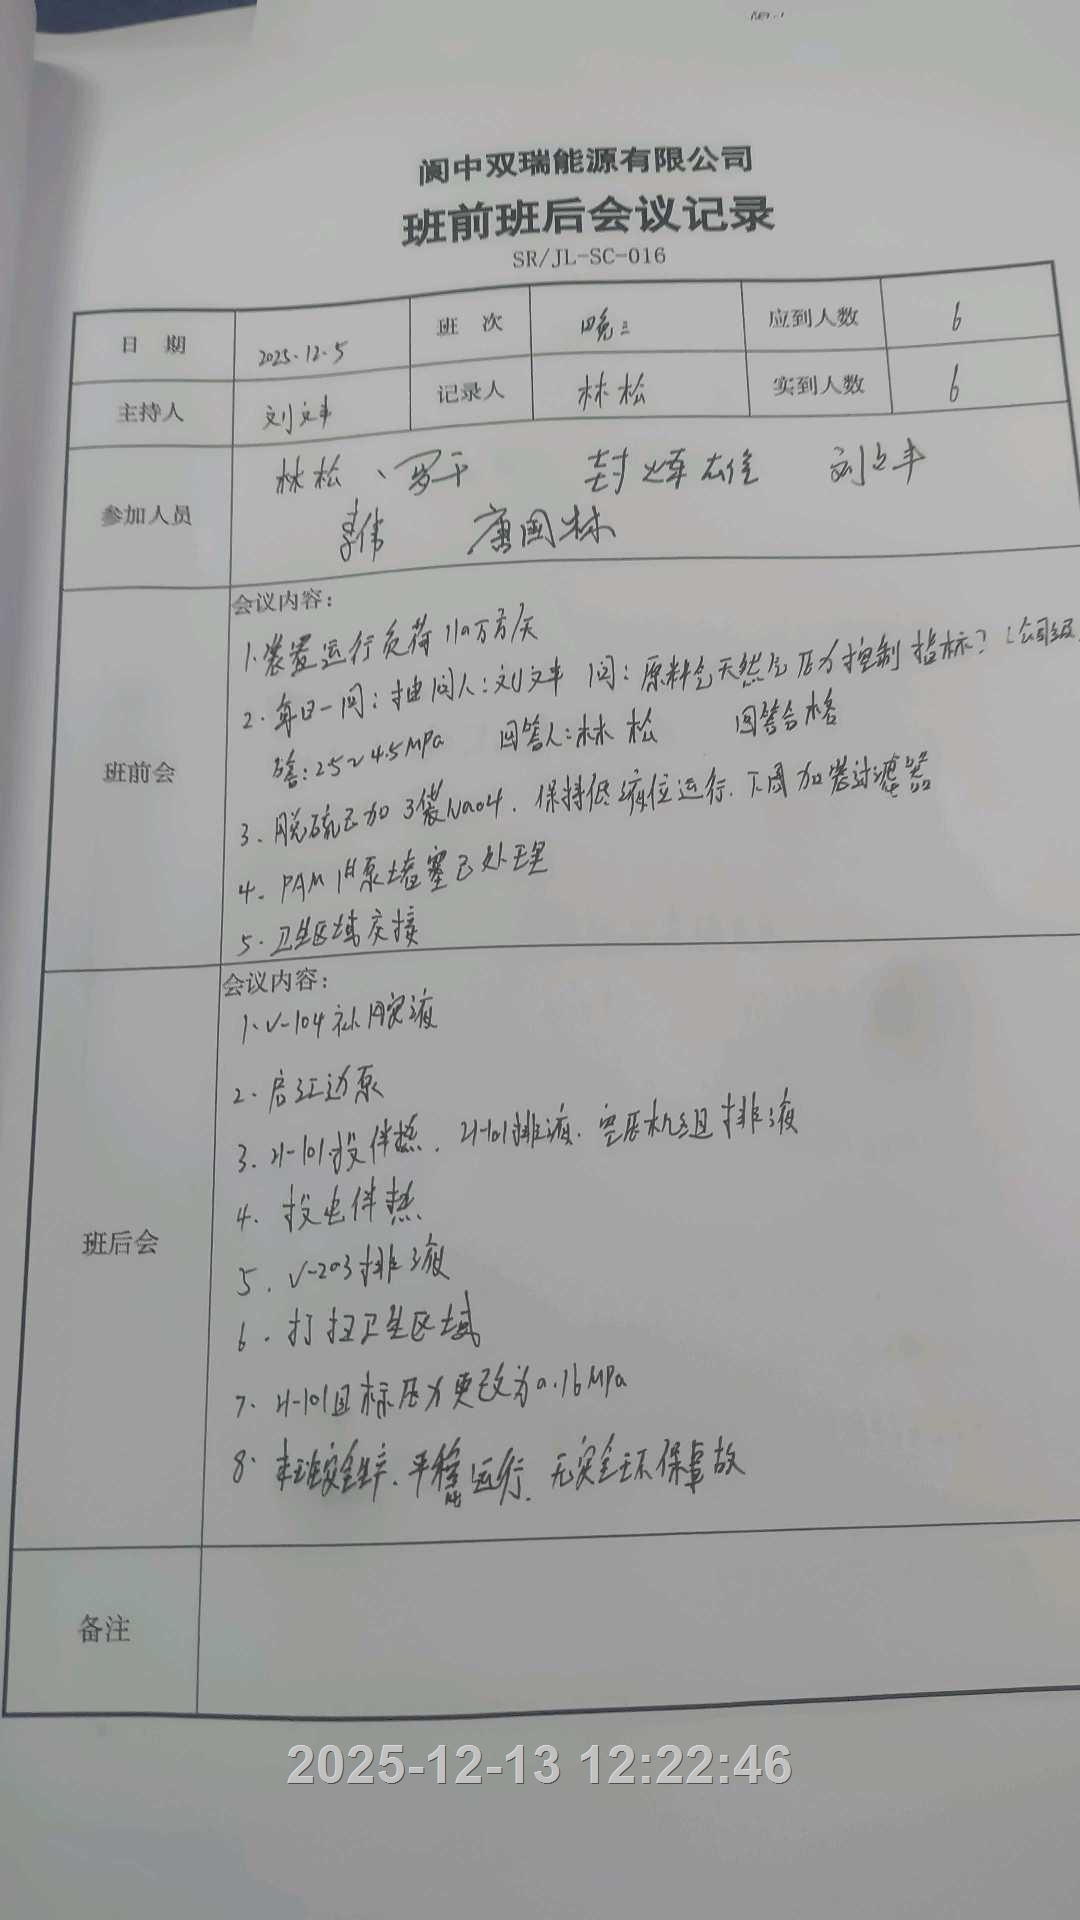 阆中双瑞能源有限公司
班前班后会议记录
SR/JL-SC-016
日 期 2025.12.5 班 次 晚三 应到人数 6
主持人 刘文丰 记录人 林松 实到人数 6
参加人员 林松、罗千 封 雄 刘文丰
李伟 唐国林
班前会
会议内容:
1.装置运行负荷110万方/天
2.每日一问:抽问人:刘文丰 问:原料气天然气压力控制指标?(公司级
答:2.5~4.5MPa 回答人:林松 回答合格
3.脱硫已加3袋NaOH.保持低液位运行.下周加装过滤器
4.PAM 泵堵塞已处理
5.卫生区域交接
班后会
会议内容:
1.V-104补 液
2.启江边泵
3.H-101投伴热.H-101排液.空压机组排液
4.投电伴热
5.V-203排液
6.打扫卫生区域
7.H-101目标压力更改为0.16MPa
8.本班安全生产.平稳运行.无安全环保事故
备注
2025-12-13 12:22:46